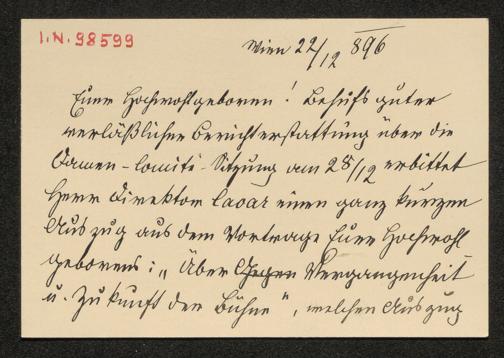 I.N. 98599
Wien 22/12 896
Euer Hochwohlgeboren! Behufs guter
verläßlicher Berichterstattung über die
Damen-Comité-Sitzung am 28/12 erbittet
Herr Direktor einen ganz kurzen
Auszug aus dem Vortrage Euer Hochwohl
geborens: „Über Gegen Vergangenheit
u. Zukunft der Bühne", welchen Auszug